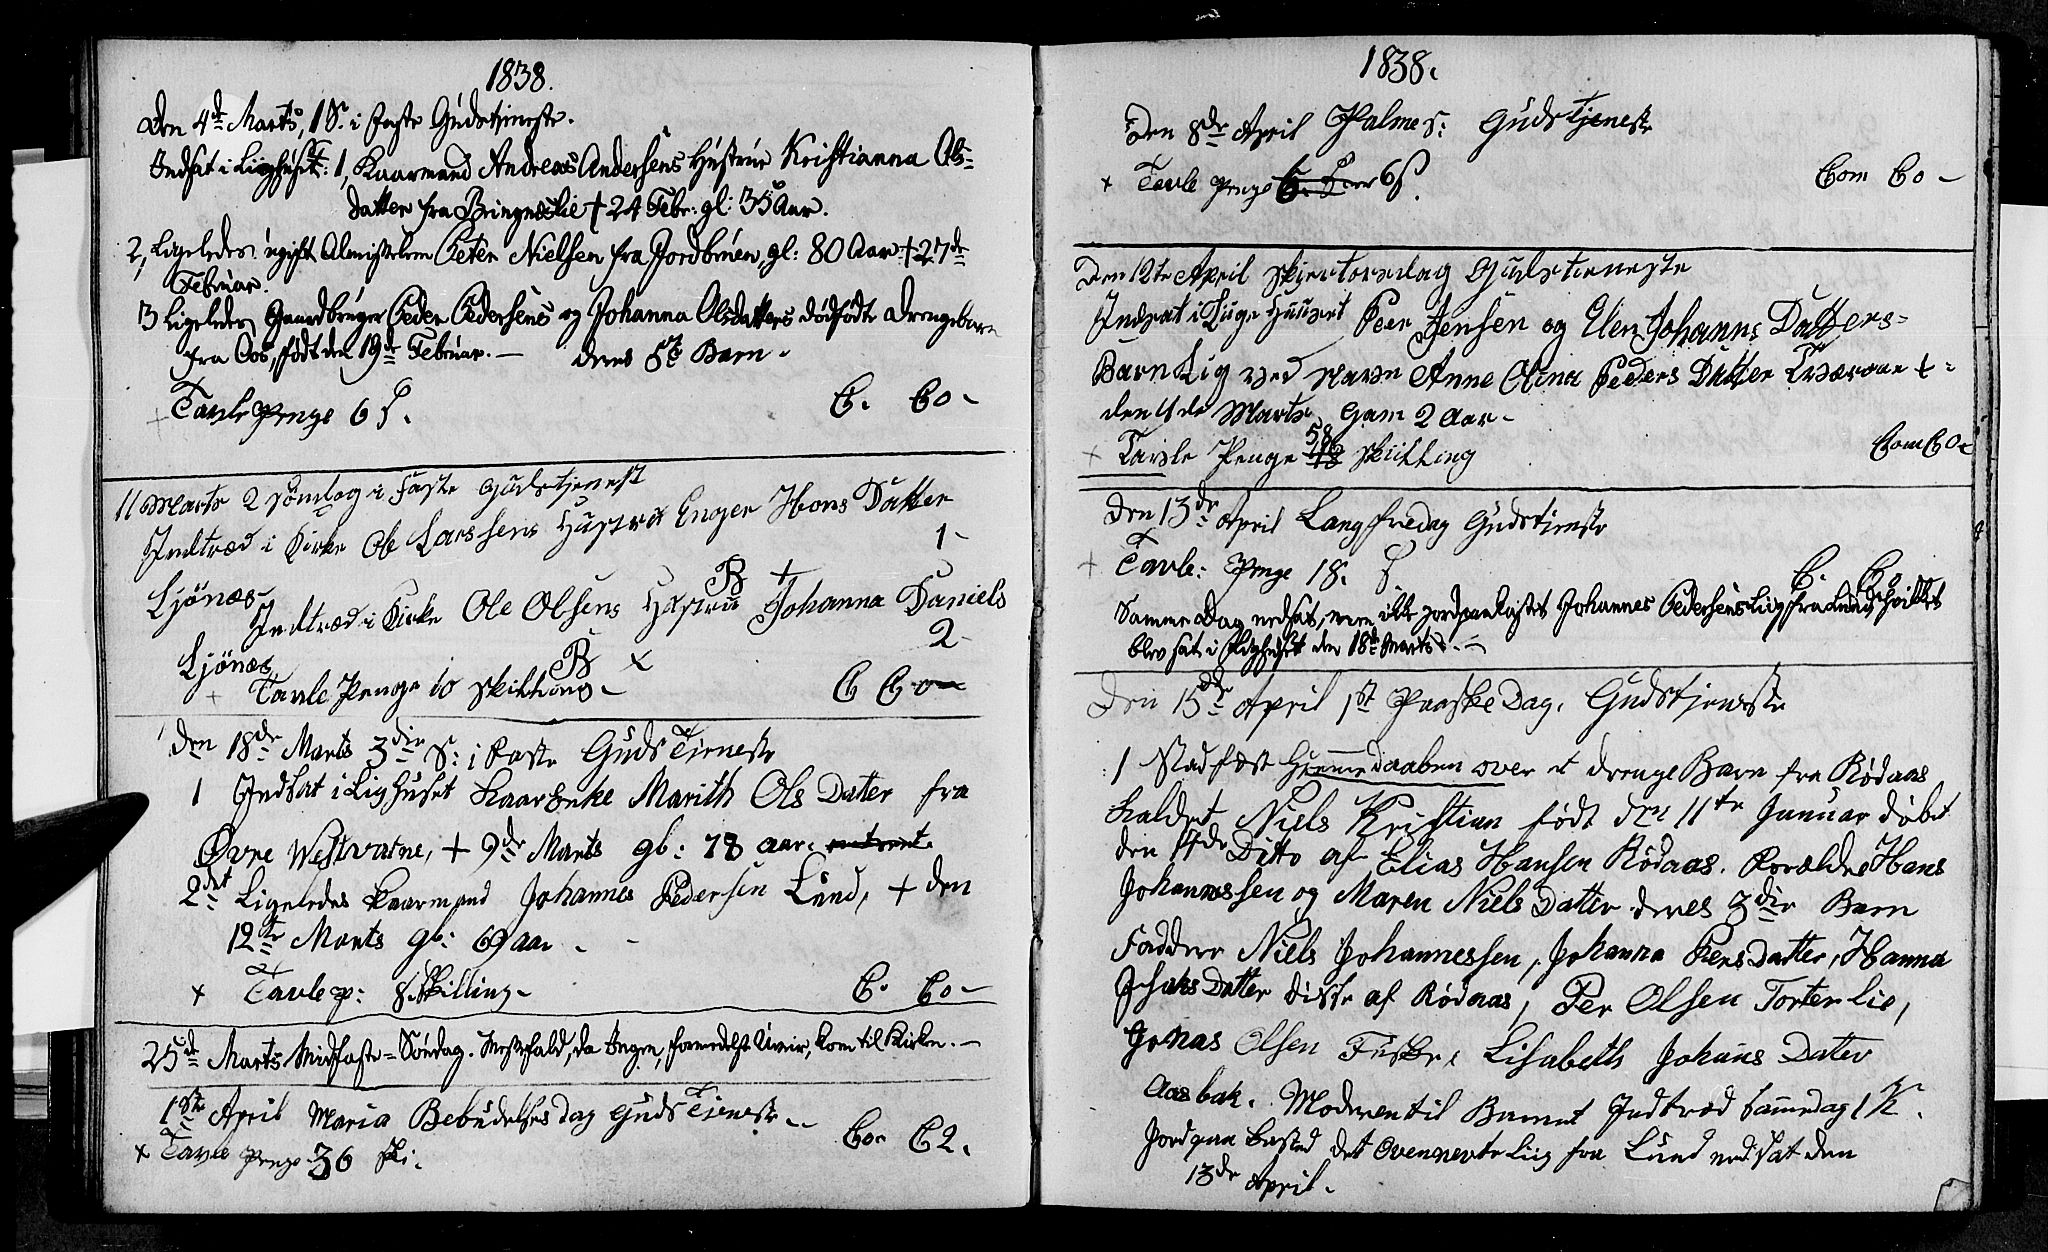 1838.
Den 4de Marts, 1 S. i Faste Gudstjeneste.
Indsat i Lighuset: 1, Kaarmand Andreas Andersens Hustrue Kristianna Ols-
datter fra Bringneslie † 24 Febr: gl: 35 Aar.
2, Ligeledes ugift Almislem Peter Nielsen fra Jordbruen, gl: 80 Aar † 27de
Februar.
3 Ligeledes Gaardbruger Peder Pedersens og Johanna Olsdatters dødfødte Drengebarn
fra Oos, født den 19de Februar. — deres 8de Barn.
+ Tavlepenge 6 ß. C. Co -
11 Marts 2 Sömdag i Faste Gudstjenest
Indtræd i Kirke Ole Larssens Hustru Enger Hans Datter
Ljönæs 1-
B +
Indtræd i Kirke Ole Olsens Hustru Johanna Daniels
Ljönæs 2-
B x
+ Tavle Penge 10 Skilling - C Co -
Den 18de Marts 3die S: i Faste Guds Tieneste
1 Indsat i Lighuset KaarEnke Marith Ols Datter fra
Øvre Westvatne, + 9de Marts gl: 78 aar.
2det Ligeledes Kaarmand Johannes Pedersen Lund, + den
12te Marts gl: 69 aar. -
x Tavle p: 8. Skilling - C. Co -
25de Marts Midfaste-Søndag. Messefald, da Ingen, formedelst Uveir, kom til Kirken. -
1ste April Maria Bebudelses Dag Guds Tieneste -
x Tavle Penge 36 Ski. Co C2.
1838.
Den 8de April Palme S: Gudstjeneste
x Tavle Penge 6ß. Com Co -
Den 12te April Skjertorsdag Gudstieneste
Indsat i Liige Huuset Peer Jensen og Elen Johanns Datters-
Barn Lig ved Navn Anne Olina Peders Datter Tværaae + -
den 4de Marts Gam 2 Aar -
+ Tavle Penge 58 Skilling Com Co -
Den 13de April Langfredag Gudstieneste
+ Tavle: Penge 18. ß C. Co
Samme Dag nedsat, men ikke jordpaakastet Johannes Pedersens Liig fra Lund, hvilket
blev sat i Lighuset den 18de Marts. -
Den 15de April 1st PaaskeDag. Gudstjeneste
1 Stadfæst Hjemmedaaben over et drenge Barn fra Rödaas
kaldet Niels Kristian födt den 11te Januar döbt
den 14de Ditto af Elias Hansen Rödaas. Forældre Hans
Johannessen og Maren Niels Datter deres 3die Barn
Faddere Niels Johannessen, Johanna Peersdatter, Hanna
Isaks Datter disse af Rödaas, Per Olsen Torterlie,
Jonas Olsen Fuske, Lisabeth Johans Datter
Aasbak. Moderen til Barnet Indtræd samedag 1 K.
Jordpaa kasted det Ovennevte Liig fra Lund nedsat den
13de April.